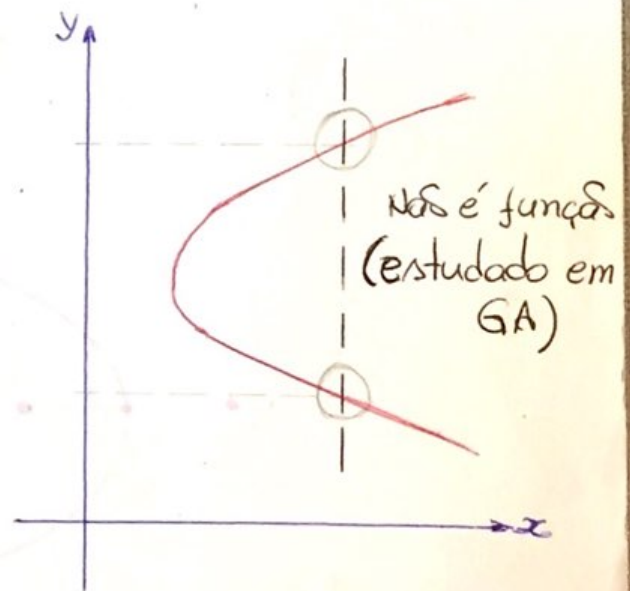 y
Não é função
(estudado em
GA)
x